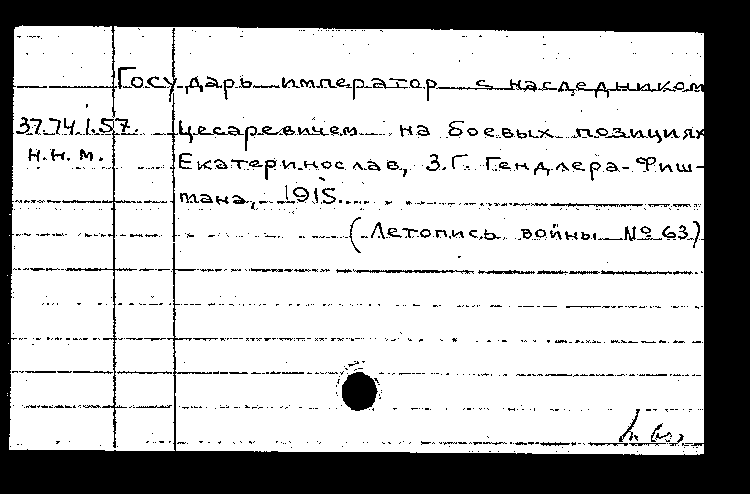 Государь император с наследником
37.74.1.57. цесаревичем на боевых позициях
н.н.м. Екатеринослав, З.Г. Гендлера-Фиш-
мана, 1915.
(Летопись войны № 63)